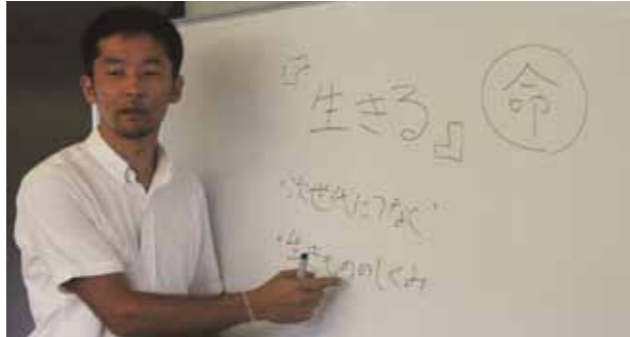 『生きる』 命
・次世代につなぐ
のしくみ